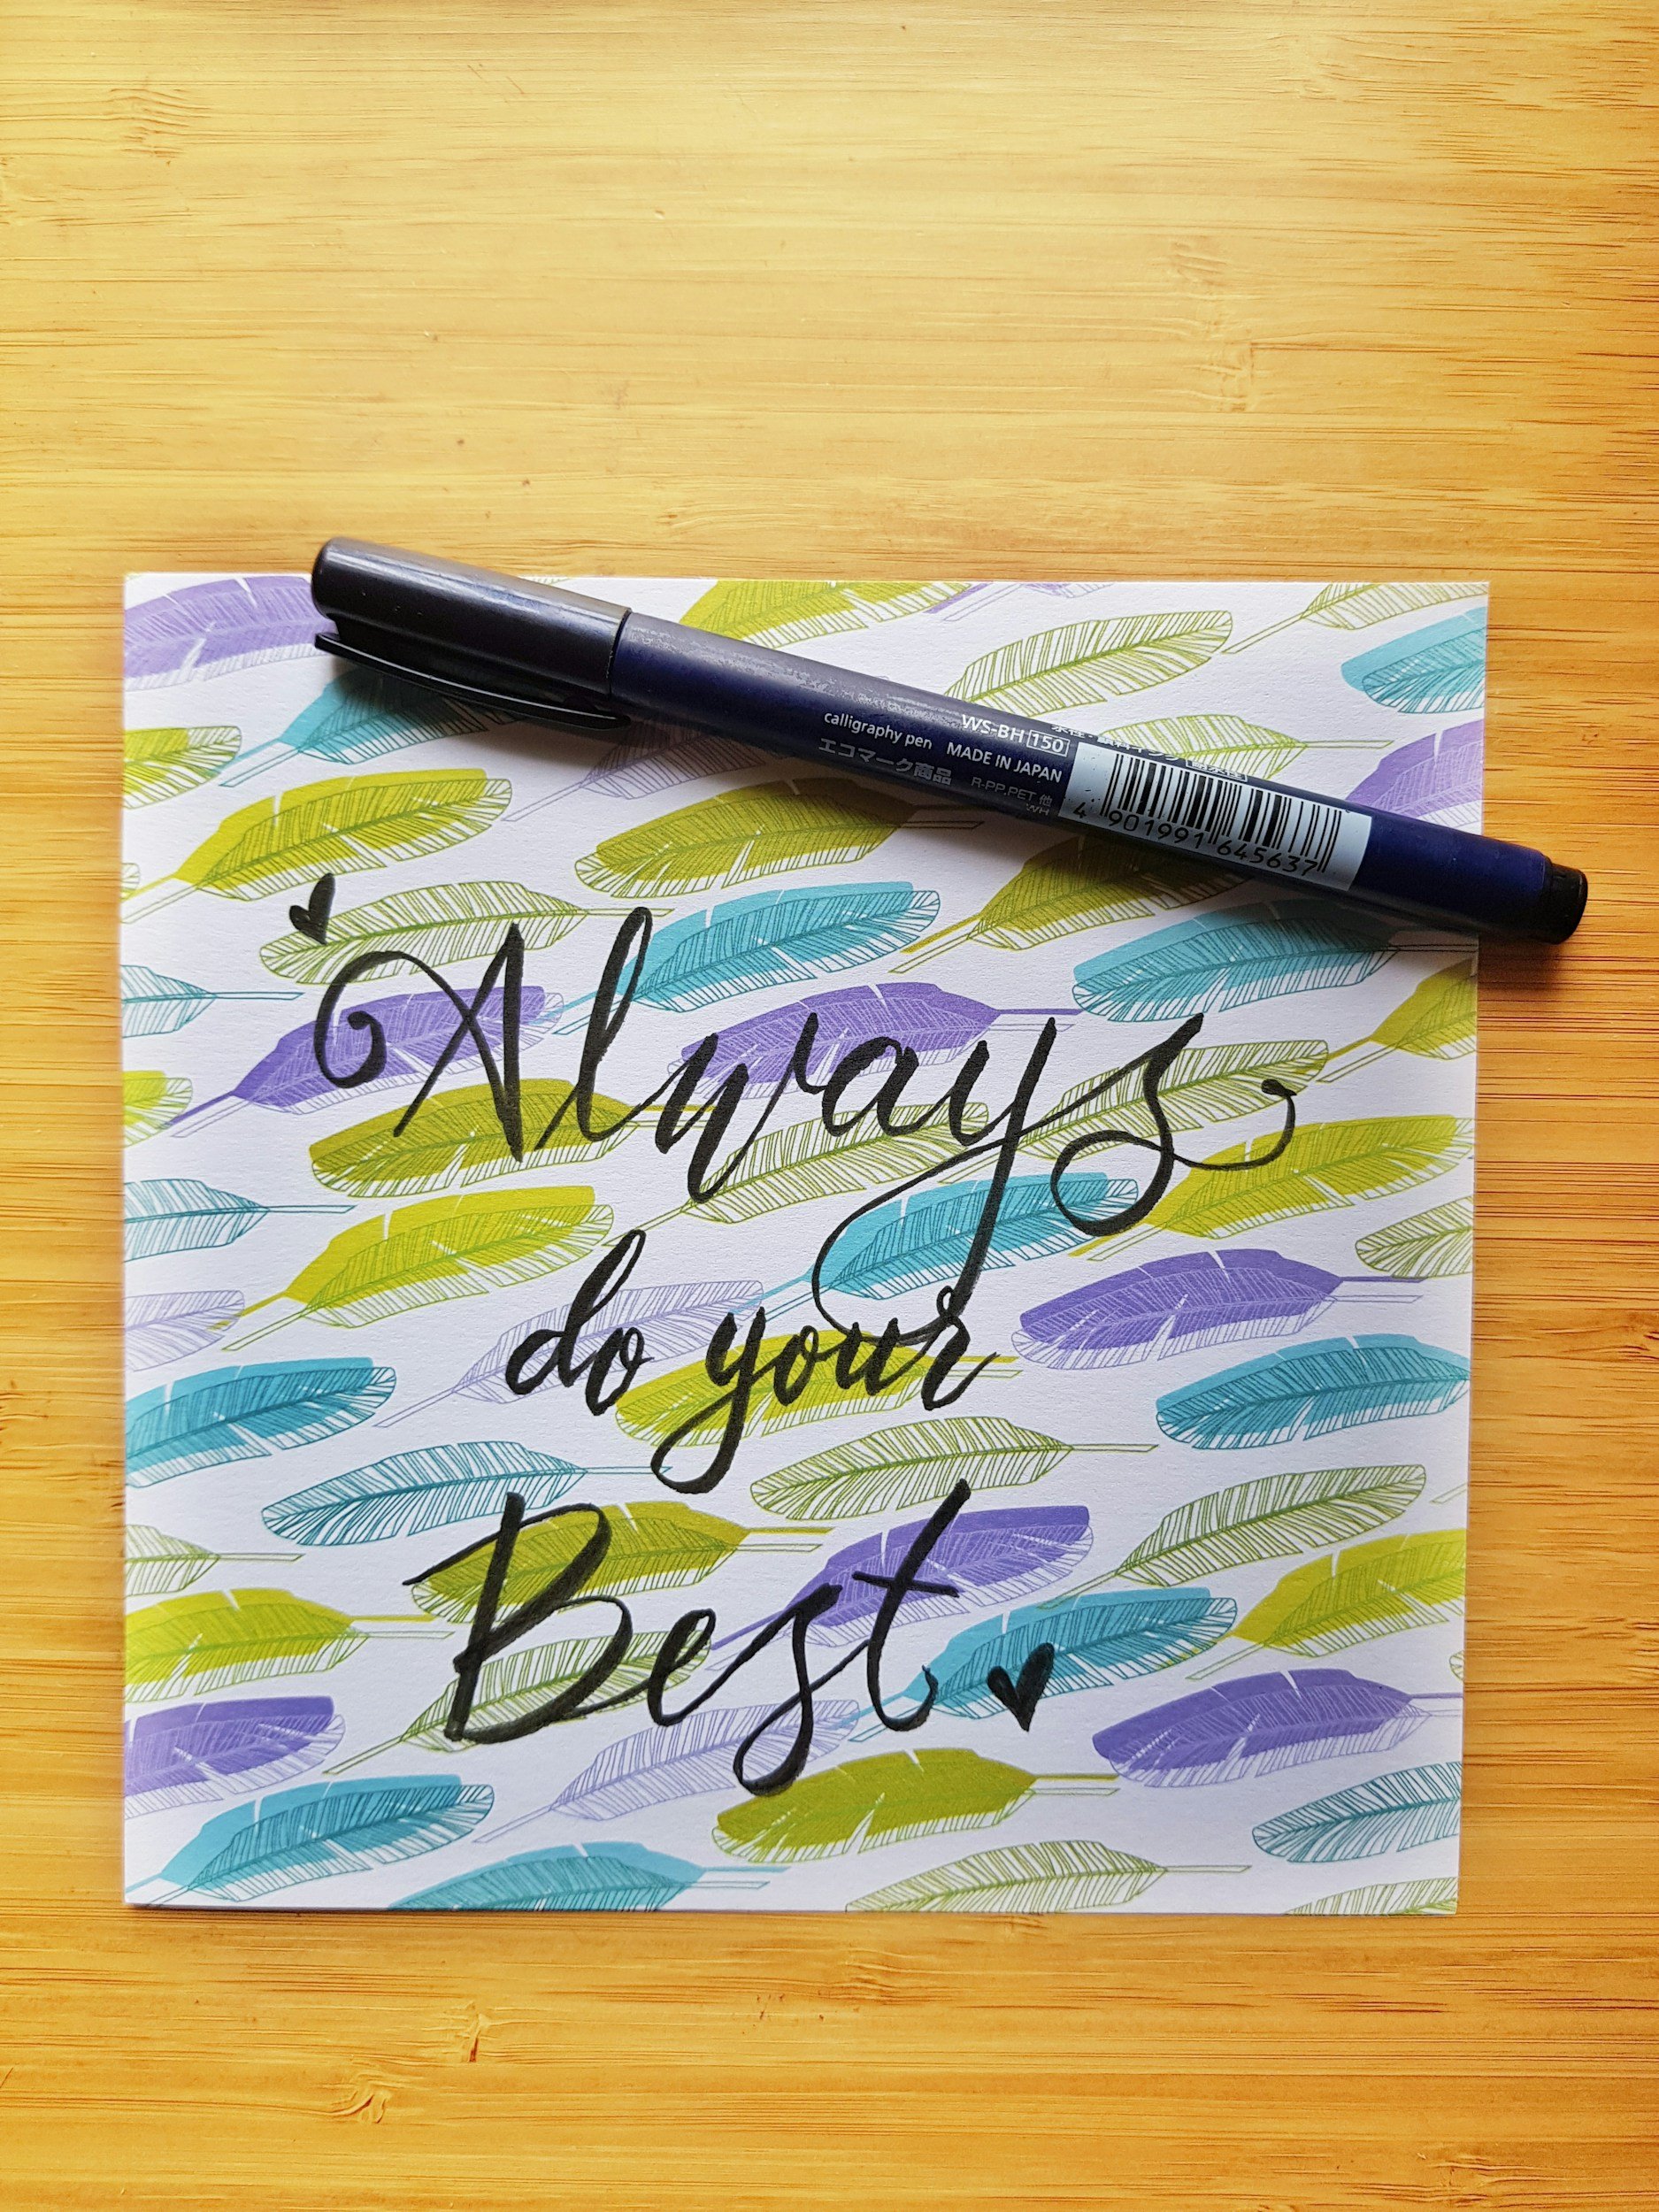 WS-BH 150
calligraphy pen MADE IN JAPAN
エコマーク商品 R-PP,PET 他
WH
4 901991 645637
Always
do your
Best